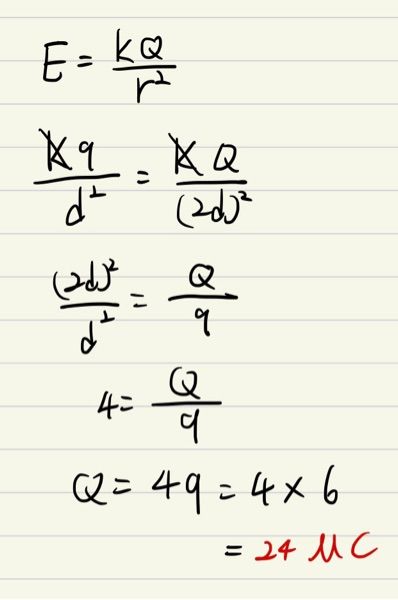 E = kQ/r²
kq/d² = kQ/(2d)²
(2d)²/d² = Q/q
4 = Q/q
Q = 4q = 4 × 6
= 24 μC